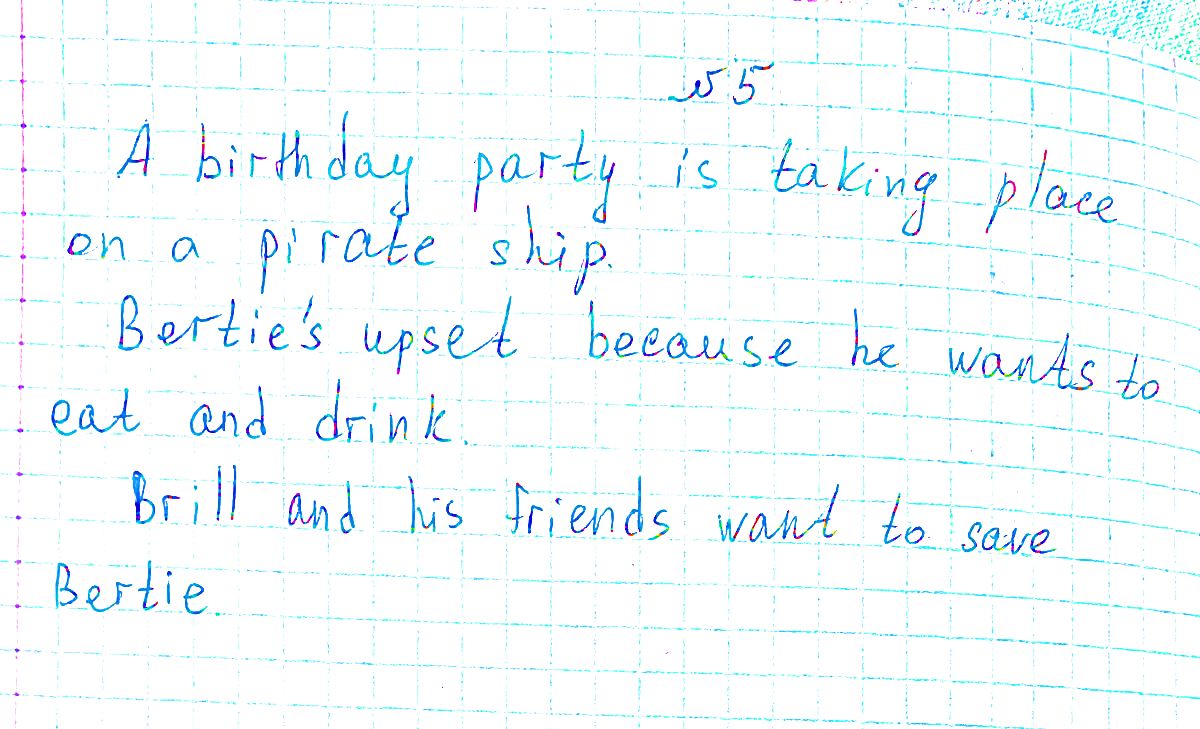 № 5
A birthday party is taking place
on a pirate ship.
Bertie's upset because he wants to
eat and drink.
Brill and his friends want to save
Bertie.